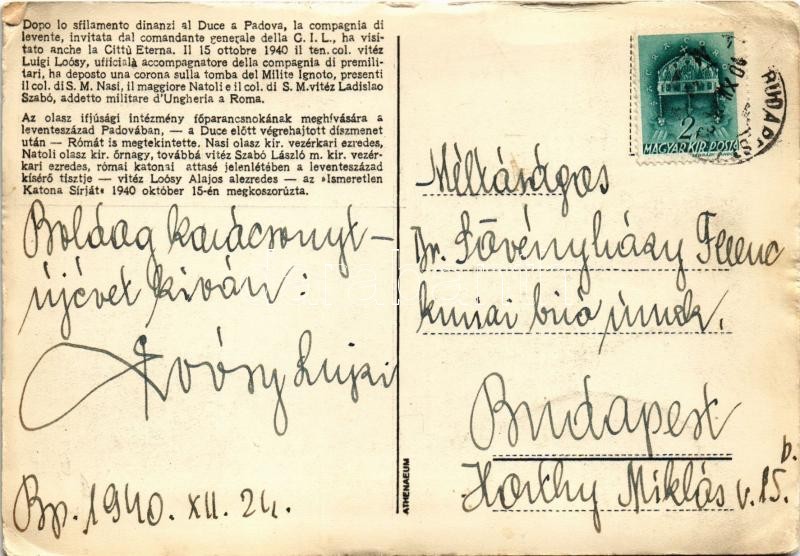 Dopo lo sfilamento dinanzi al Duce a Padova, la compagnia di
levente, invitata dal comandante generale della G. I. L., ha visi-
tato anche la Cittù Eterna. Il 15 ottobre 1940 il ten. col. vitéz
Luigi Loósy, ufficialà accompagnatore della compagnia di premili-
tari, ha deposto una corona sulla tomba del Milite Ignoto, presenti
il col. di S. M. Nasi, il maggiore Natoli e il col. di S. M. vitéz Ladislao
Szabó, addetto militare d'Ungheria a Roma.
Az olasz ifjúsági intézmény főparancsnokának meghívására a
leventeszázad Padovában, — a Duce előtt végrehajtott díszmenet
után — Rómát is megtekintette. Nasi olasz kir. vezérkari ezredes,
Natoli olasz kir. őrnagy, továbbá vitéz Szabó László m. kir. vezér-
kari ezredes, római katonai attasé jelenlétében a leventeszázad
kísérő tisztje — vitéz Loósy Alajos alezredes — az »Ismeretlen
Katona Sírját« 1940 október 15-én megkoszorúzta.
Boldog karácsonyt —
újévet kíván:
Loósy Lujzi
Bp. 1940. XII. 24.
ATHENAEUM
2
MAGYAR KIR. POSTA
Méltóságos
Dr. Sövényházy Ferenc
kuriai biró úrnak.
Budapest
Horthy Miklós v. 15.
b.